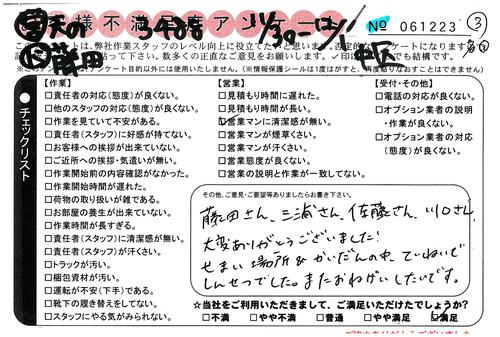 様不満足度アンケート
天の 3488 11/30-12/1
藤田 中区
No 061223
③
ケートは、弊社作業スタッフのレベル向上に役立てたいと思います。
貼って下さい。数多くの正直なご意見をお願いします。
ンケート目的以外には使用いたしません。(※情報保護シールは1度はがすと、再度貼りなおすことはできません)
チェックリスト
【作業】
□責任者の対応(態度)が良くない。
□他のスタッフの対応(態度)が良くない。
□作業を見ていて不安がある。
□責任者(スタッフ)に好感が持てない。
□お客様への挨拶が出来ていない。
□ご近所への挨拶・気遣いが無い。
□作業開始前の内容確認がなかった。
□作業開始時間が遅れた。
□荷物の取り扱いが雑である。
□お部屋の養生が出来ていない。
□作業時間が長すぎる。
□責任者(スタッフ)に清潔感が無い。
□責任者(スタッフ)が汗くさい。
□トラックが汚い。
□梱包資材が汚い。
□運転が不安(下手)である。
□靴下の履き替えをしてない。
□スタッフにやる気がみられない。
【営業】
□見積もり時間に遅れた。
□見積もり時間が長い。
□営業マンに清潔感が無い。
□営業マンが煙草くさい。
□営業マンが汗くさい。
□営業態度が良くない。
□営業の説明と作業が一致してない。
【受付・その他】
□電話の対応が良くない。
□オプション業者の説明
・作業が良くない。
□オプション業者の対応
(態度)が良くない。
その他、ご意見・ご要望等ありましたらお書き下さい。
藤田さん、三浦さん、佐藤さん、川口さん
大変ありがとうございました!
せまい場所&かいだんの中、ていねいで
しんせつでした。またおねがいしたいです。
☆当社をご利用いただきまして、ご満足いただけたでしょうか?
□不満 □やや不満 □普通 □やや満足 ☑満足